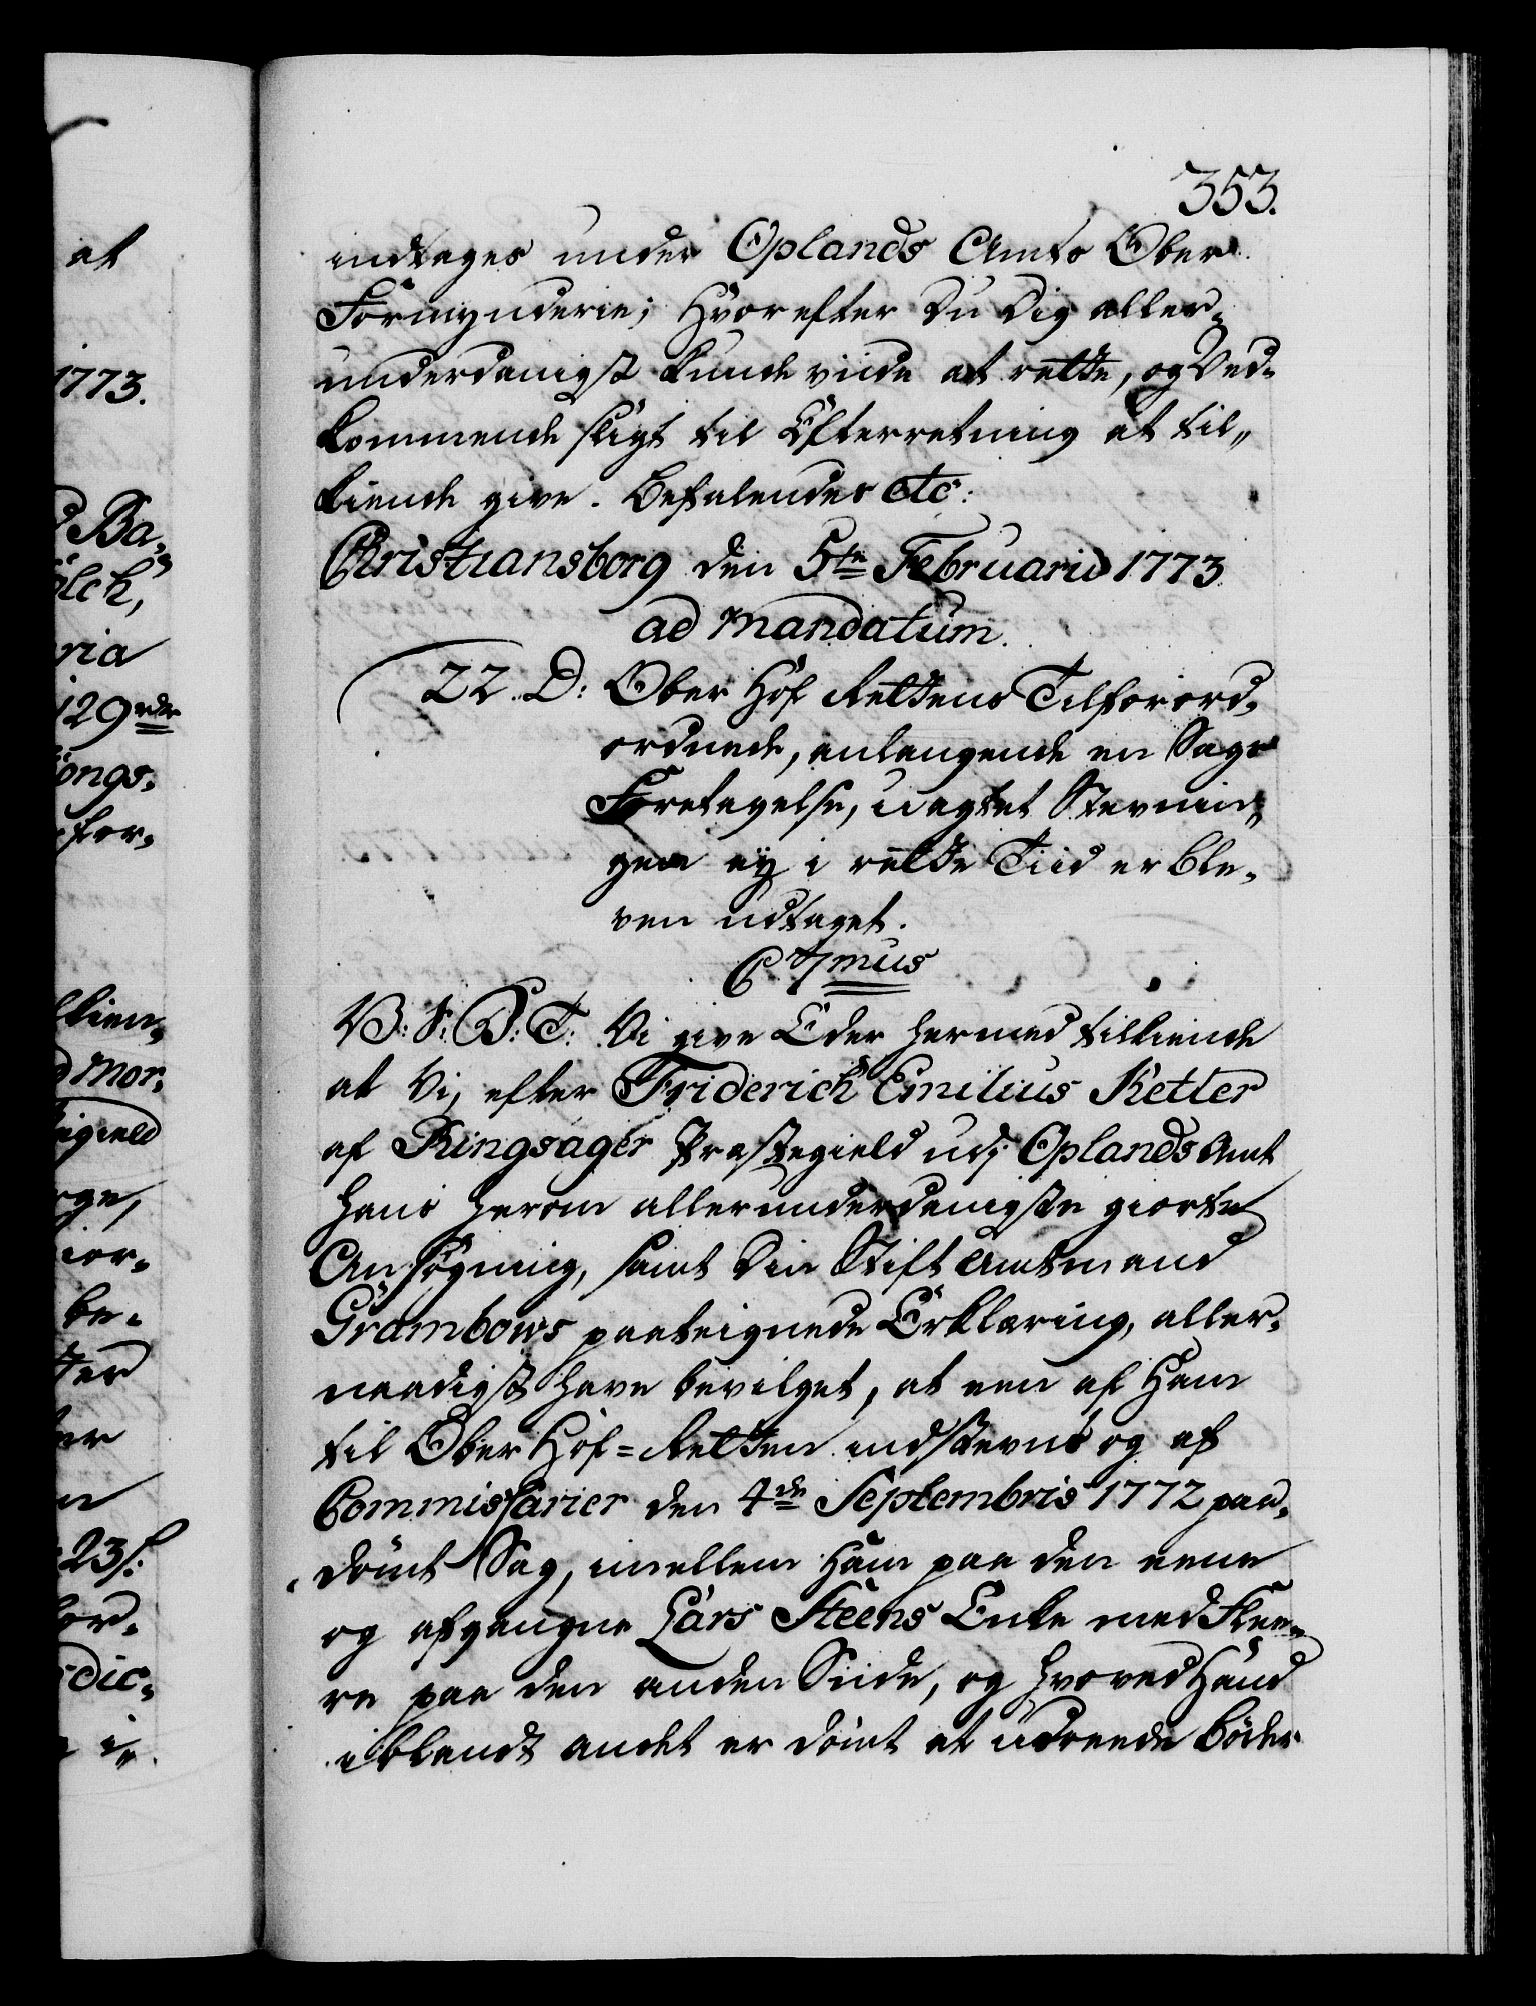 at
1773.
d Ba,
ölck,
ria
129rdr
Kongs.
for,
lkien,
d Mor,
tegield
rge,
ior,
be,
ter
er
n
23 s:
for,
dic,
i,,
353.
indtages under Oplands Amts Ober
Formynderie; Hvorefter Du Dig aller,
underdanigst kunde viide at rette, og Ved,
kommende sligt til Efterretning at til,,
kiende give. Befalendes etc:
Christiansborg den 5te Februarii 1773
ad Mandatum.
22. D: Ober Hof Rettens Tilforord,
ordnede, anlangende en Sags
Foretagelse, uagtet Stevnin,,
gen ey i rette Tiid er ble,
ven udtaget.
C 7mus
V: S: B: T: Vi give Eder hermed tilkiende
at Vi, efter Friderich Emilius Ketler
af Ringsager Præstegield udj Oplands Amt
hans herom allerunderdanigste giorte
Ansøgning, samt Din Stift Amtmand
Grambows paategnede Erklæring, aller,
naadigst have bevilget, at een af Ham
til Ober Hof-Retten indstevnt og af
Commissarier den 4de Septembris 1772 paa,
dømt Sag, imellem Ham paa den eene
og afgangne Lars Steens Enke med Flee,
re paa den anden Siide, og hvorved Hand
iblandt andet er dømt at udreede Bøder